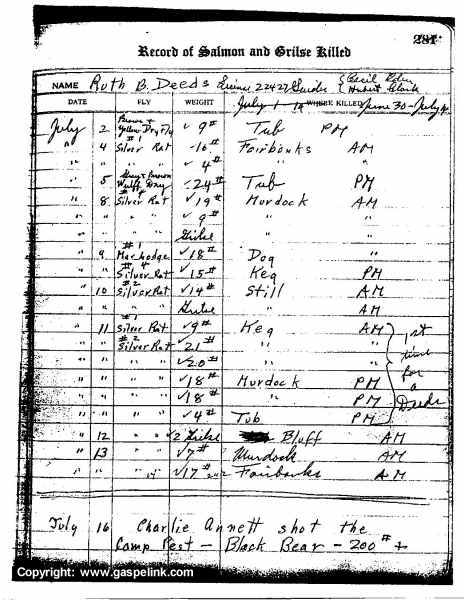 281
Record of Salmon and Grilse Killed
NAME Ruth B. Deeds 22427 Guides { Cecil
Hubert Clark
DATE FLY WEIGHT July 1 WHERE KILLED June 30 - July
Brown +
July 2 Yellow Dry Fly ✓ 9# Tub PM
#1
" 4 Silver Rat -16# Fairbanks AM
" " " " ✓ 4# " "
Gray + Brown
5 Wulff Dry -24# Tub PM
#4
" 8 Silver Rat ✓ 19# Murdock AM
" " " " ✓ 9# " "
Grilse "
#1
" 9 Mar Lodge ✓ 18# Dog
#4
" " Silver Rat ✓ 15# Keg PM
#2
" 10 Silver Rat ✓ 14# Still AM
" " " " Grilse AM
#1
" 11 Silver Rat ✓ 9# Keg AM } 1st
#2
" Silver Rat ✓ 21# " " time
" " " " ✓ 20# " " for
" " " " ✓ 18# Murdock PM a
" " " " ✓ 18 " PM Deeds
" " " " ✓ 4# Tub PM
" 12 " " ✓ 2 Grilse Bluff AM
" 13 " " ✓ 7# Murdock AM
" " " " ✓ 17# Fairbanks AM
July 16 Charlie Annett shot the
Camp Pest - Black Bear - 200# +
Copyright: www.gaspelink.com